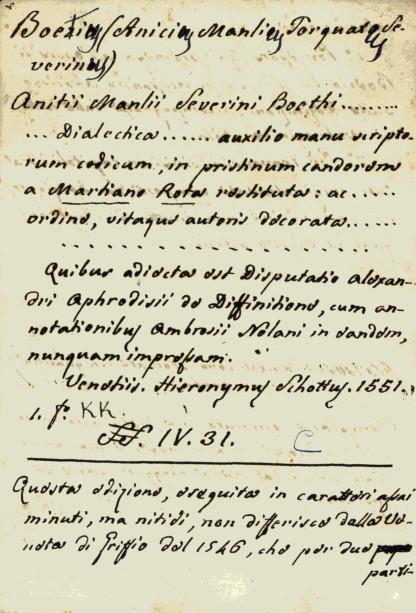 Boezius (Anicius Manlius Torquatus Se-
verinus)
Anitii Manlii Severini Boethi.........
... Dialectica ...... auxilio manu scripto-
rum codicum, in pristinum candorem
a Martiano Rota restituta: ac.....
ordine, vitaque autoris decorata......
. . . . . . . . . . . . . . .
Quibus adiecta est Disputatio alexan-
dri Aphrodisii de Diffinitione, cum an-
notationibus Ambrosii Nolani in eandem,
nunquam impressam.
Venetiis. Hieronymus Schottus. 1551.
1. fo. KK.
IV. 31. C
Questa edizione, eseguita in caratteri assai
minuti, ma nitidi, non differisce dalla Ve-
neta di Griffio del 1546, che per due
parti-